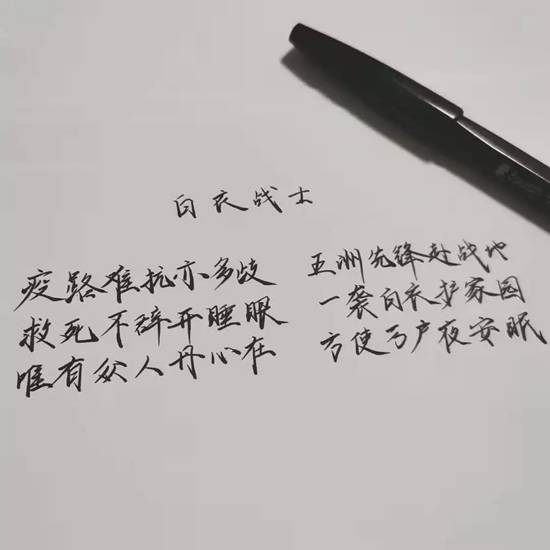 白衣战士
疫路难抗亦多歧 五洲先锋赴战地
救死不辞开睡眼 一袭白衣护家园
唯有众人丹心在 方使万户夜安眠